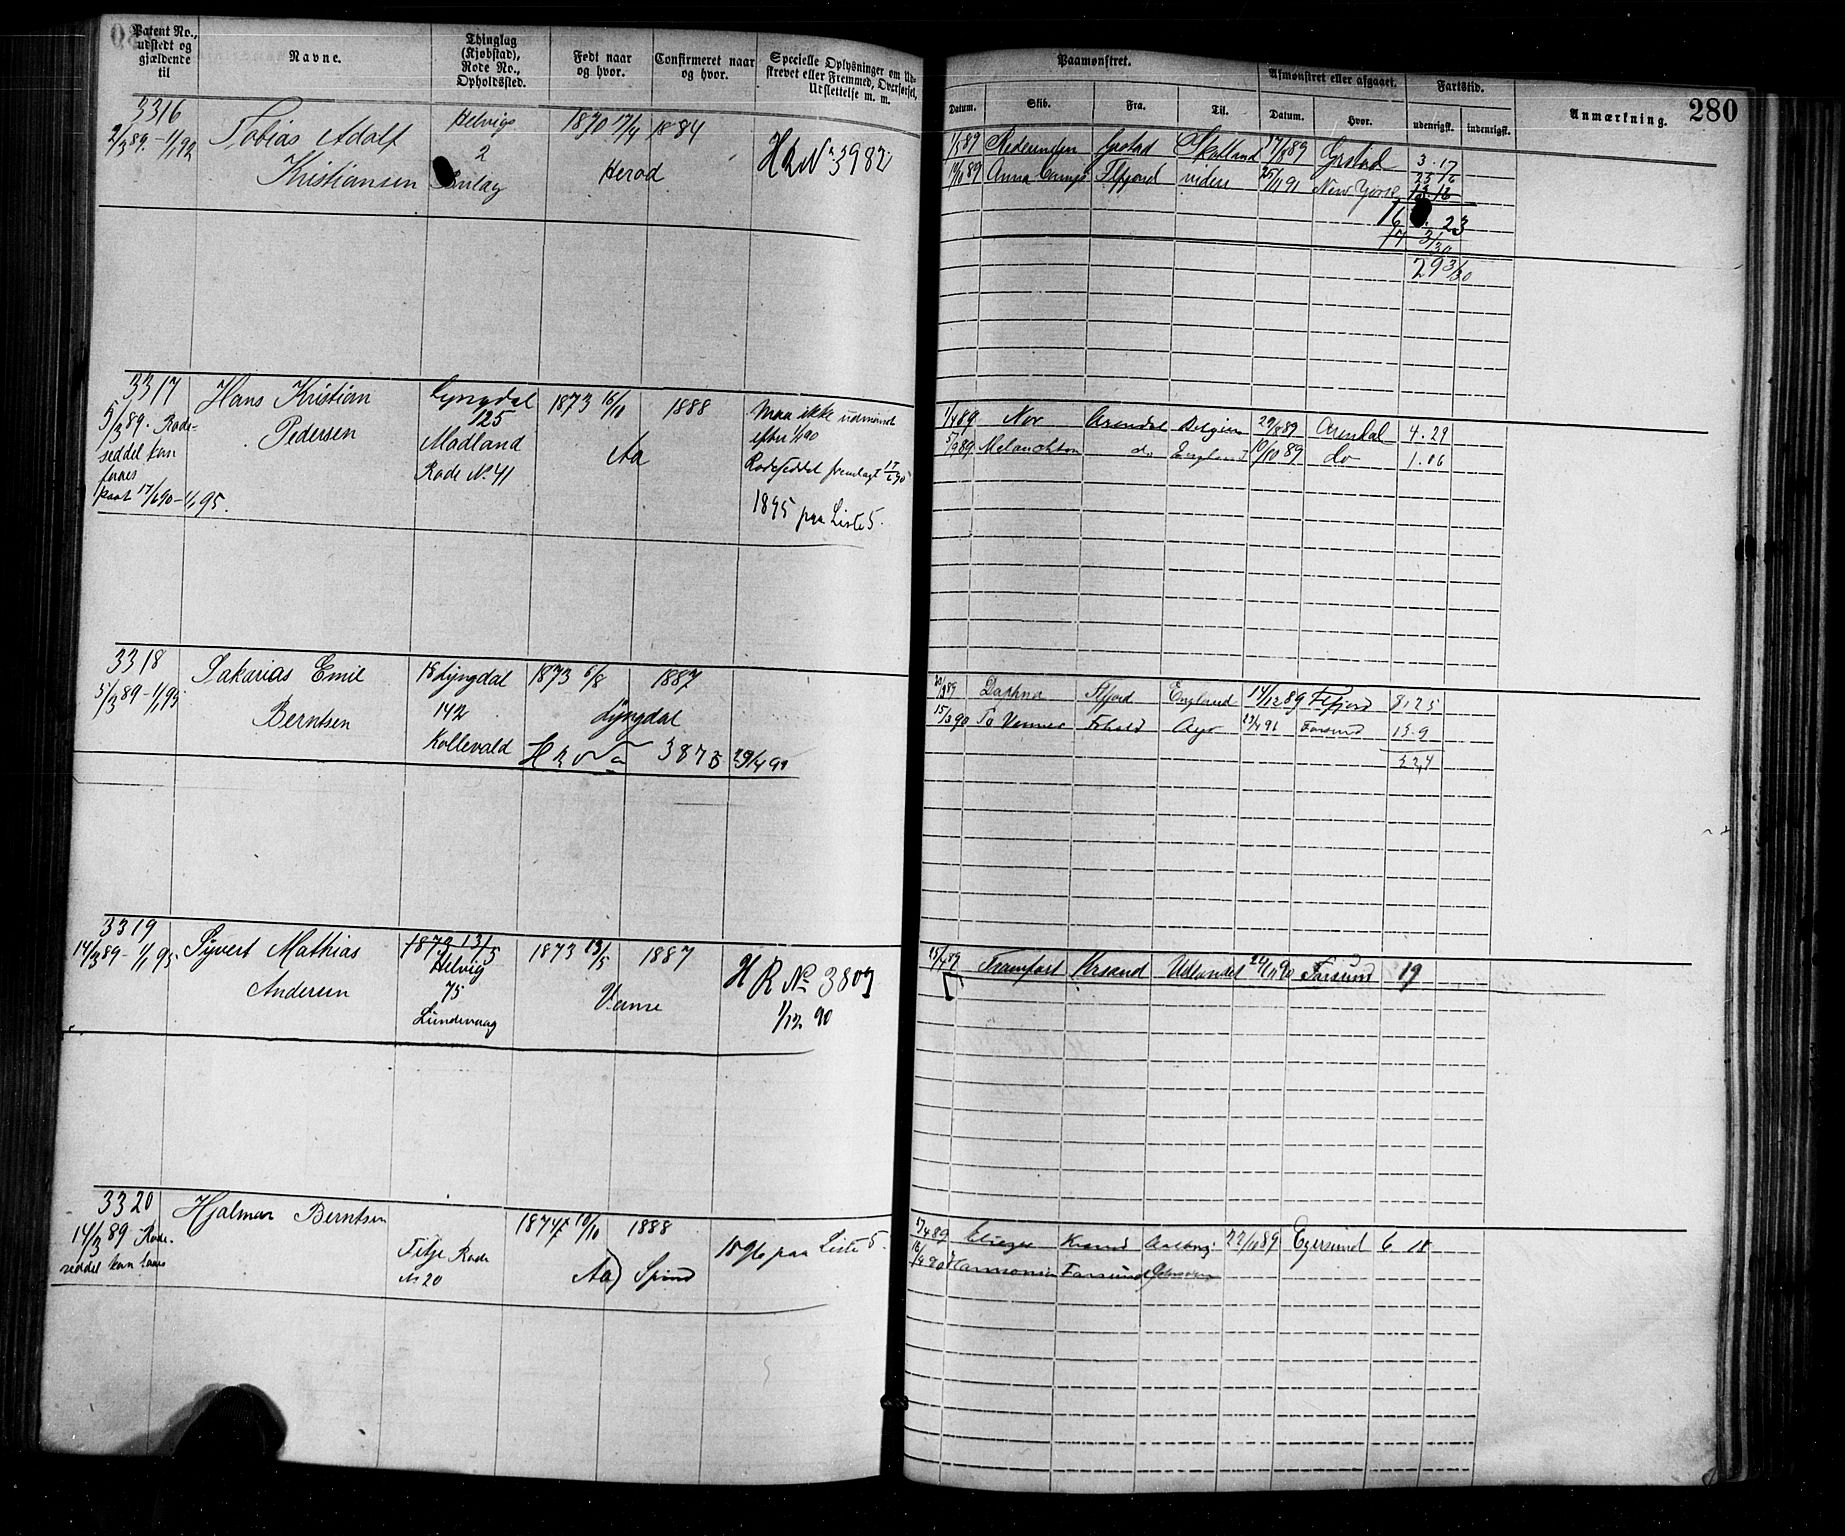 280
Patent No., udstedt og gjældende til
Navne.
Thinglag (Kjøbstad), Rode No., Opholdssted.
Født naar og hvor.
Confirmeret naar og hvor.
Specielle Oplysninger om Udskrevet eller Fremmed, Overførsel, Udslettelse m. m.
Paamønstret.
Datum.
Skib.
Fra.
Til.
Afmønstret eller afgaaet.
Datum.
Hvor.
Fartstid.
udenrigst.
indenrigst.
Anmærkning.
3316
2/3 89.-1/1 92
Tobias Adolf
Kristiansen
Helvig
2
1870 17/4
1884
Herad
H R No 3982
1/5 89 Grstad Skotland 17/8 89 Grstad 3.17
Anna Camps Flfjord 25/11 91 New York
16 23
17 3/30
29 3/30
3317
5/3 89. Rode-
seddel kan
faaes
17/6 90-1/1 95.
Hans Kristian
Pedersen
Lyngdal
125
Madland
Rode No 41
1873 16/11
1888
Aa
Maa ikke udmønst
efter 1/1 90
Rodeseddel fremlagt 17/6 90
1895 paa Liste 5.
1/4 89 Nor Arendal Belgien 29/8 89 Arendal 4.29
5/9 89 Melanchton do England 10/10 89 do 1.06
3318
5/3 89-1/1 95
Sakarias Emil
Berntsen
Lyngdal
142
Kollevald
1873 6/8
1887
Lyngdal
H R No 3873 29/4 91
Daphne Flfjord England 14/12 89 Flfjord 8,25
15/3 90 Farsund 15-9
3319
14/3 89-1/1 95.
Syvert Mathias
Andersen
1873 13/5
Helvig
75
Lundevaag
1873 13/5
1887
Vanse
H R No 3807
1/12 90
25/4 89 Framfart Krsand Udlandet 24/11 90 Farsund 19
3320
14/3 89-Rode-
seddel kan faaes
Hjalmar Berntsen
Rode
No 20
1874 10/10
1888
Aa) Spind
1896 paa Liste 5.
Eliezer Krsand 22/10 89 Egersund 6 18
Harmonien Farsund